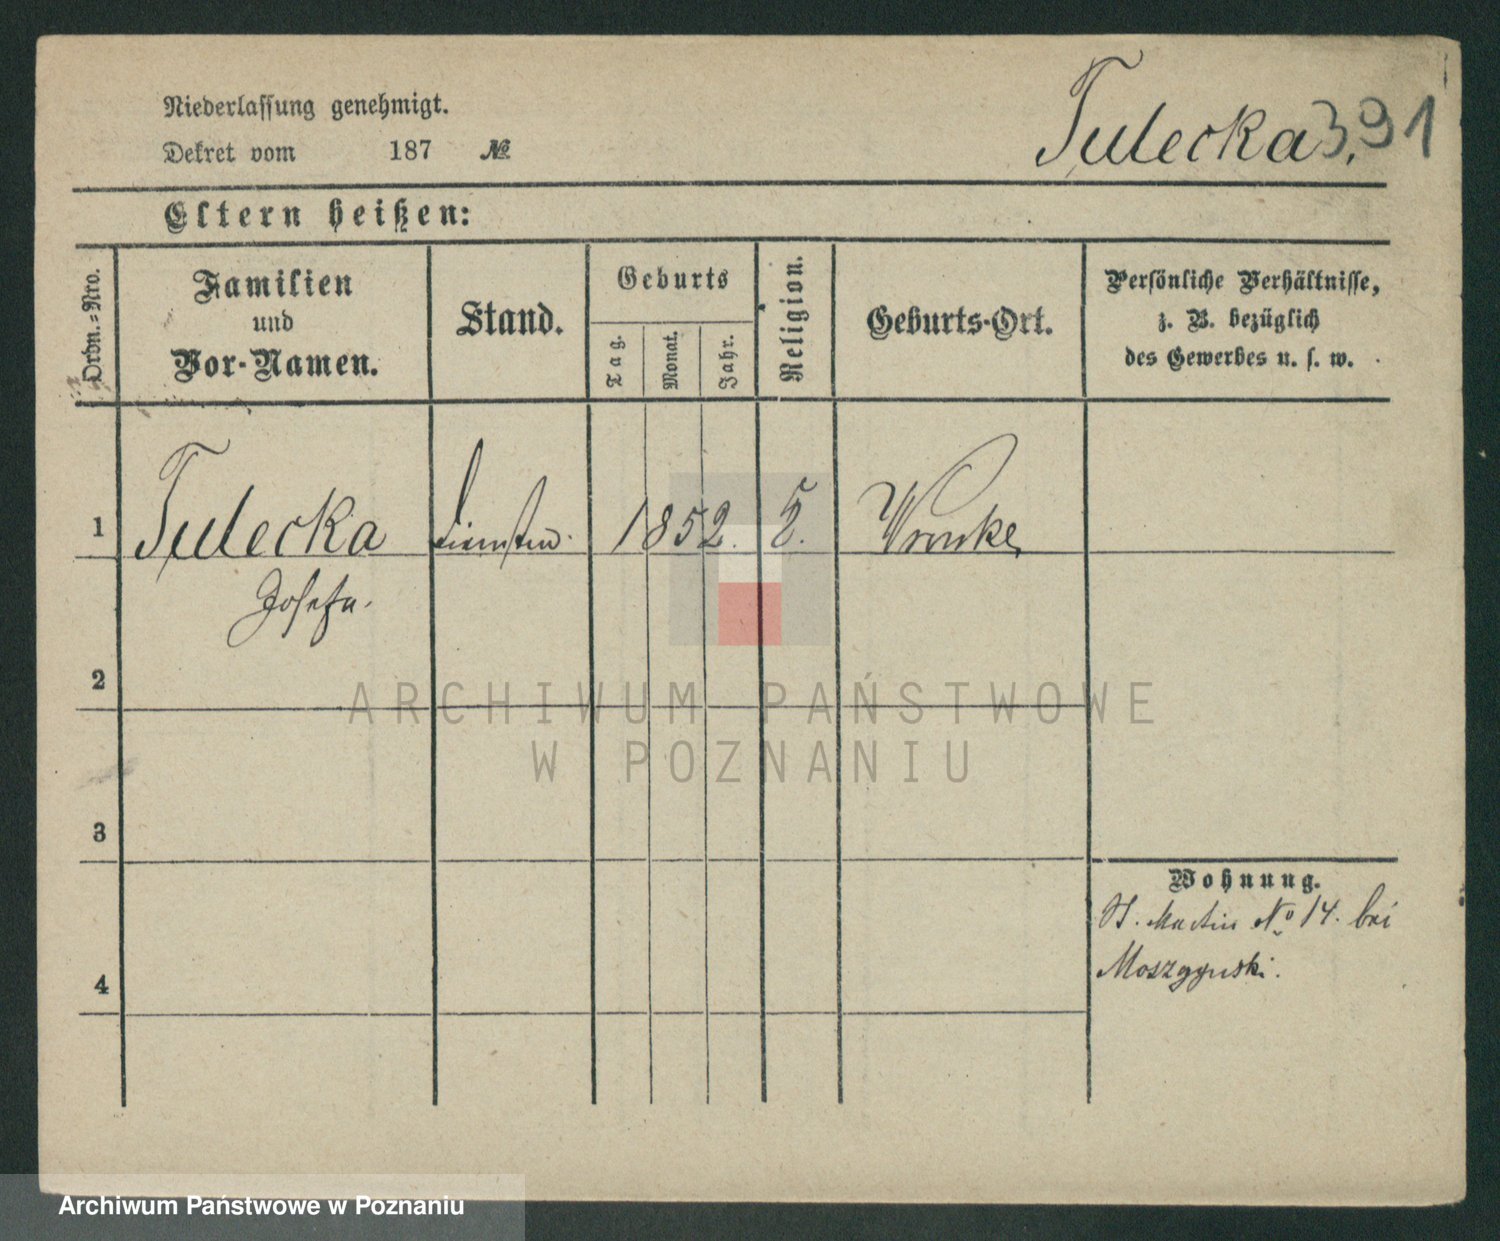 Niederlassung genehmigt.
Dekret vom 187 №
Tulecka
391
Eltern heißen:
Ordn.-Nro.
Familien
und
Vor-Namen.
Stand.
Geburts
Tag.
Monat.
Jahr.
Religion.
Geburts-Ort.
Persönliche Verhältnisse,
z. B. bezüglich
des Gewerbes u. s. w.
1 Tulecka 1852. Wronke
Josefa.
2
ARCHIWUM PAŃSTWOWE
W POZNANIU
3
Wohnung.
St. Martin No 14. bei
4
Archiwum Państwowe w Poznaniu